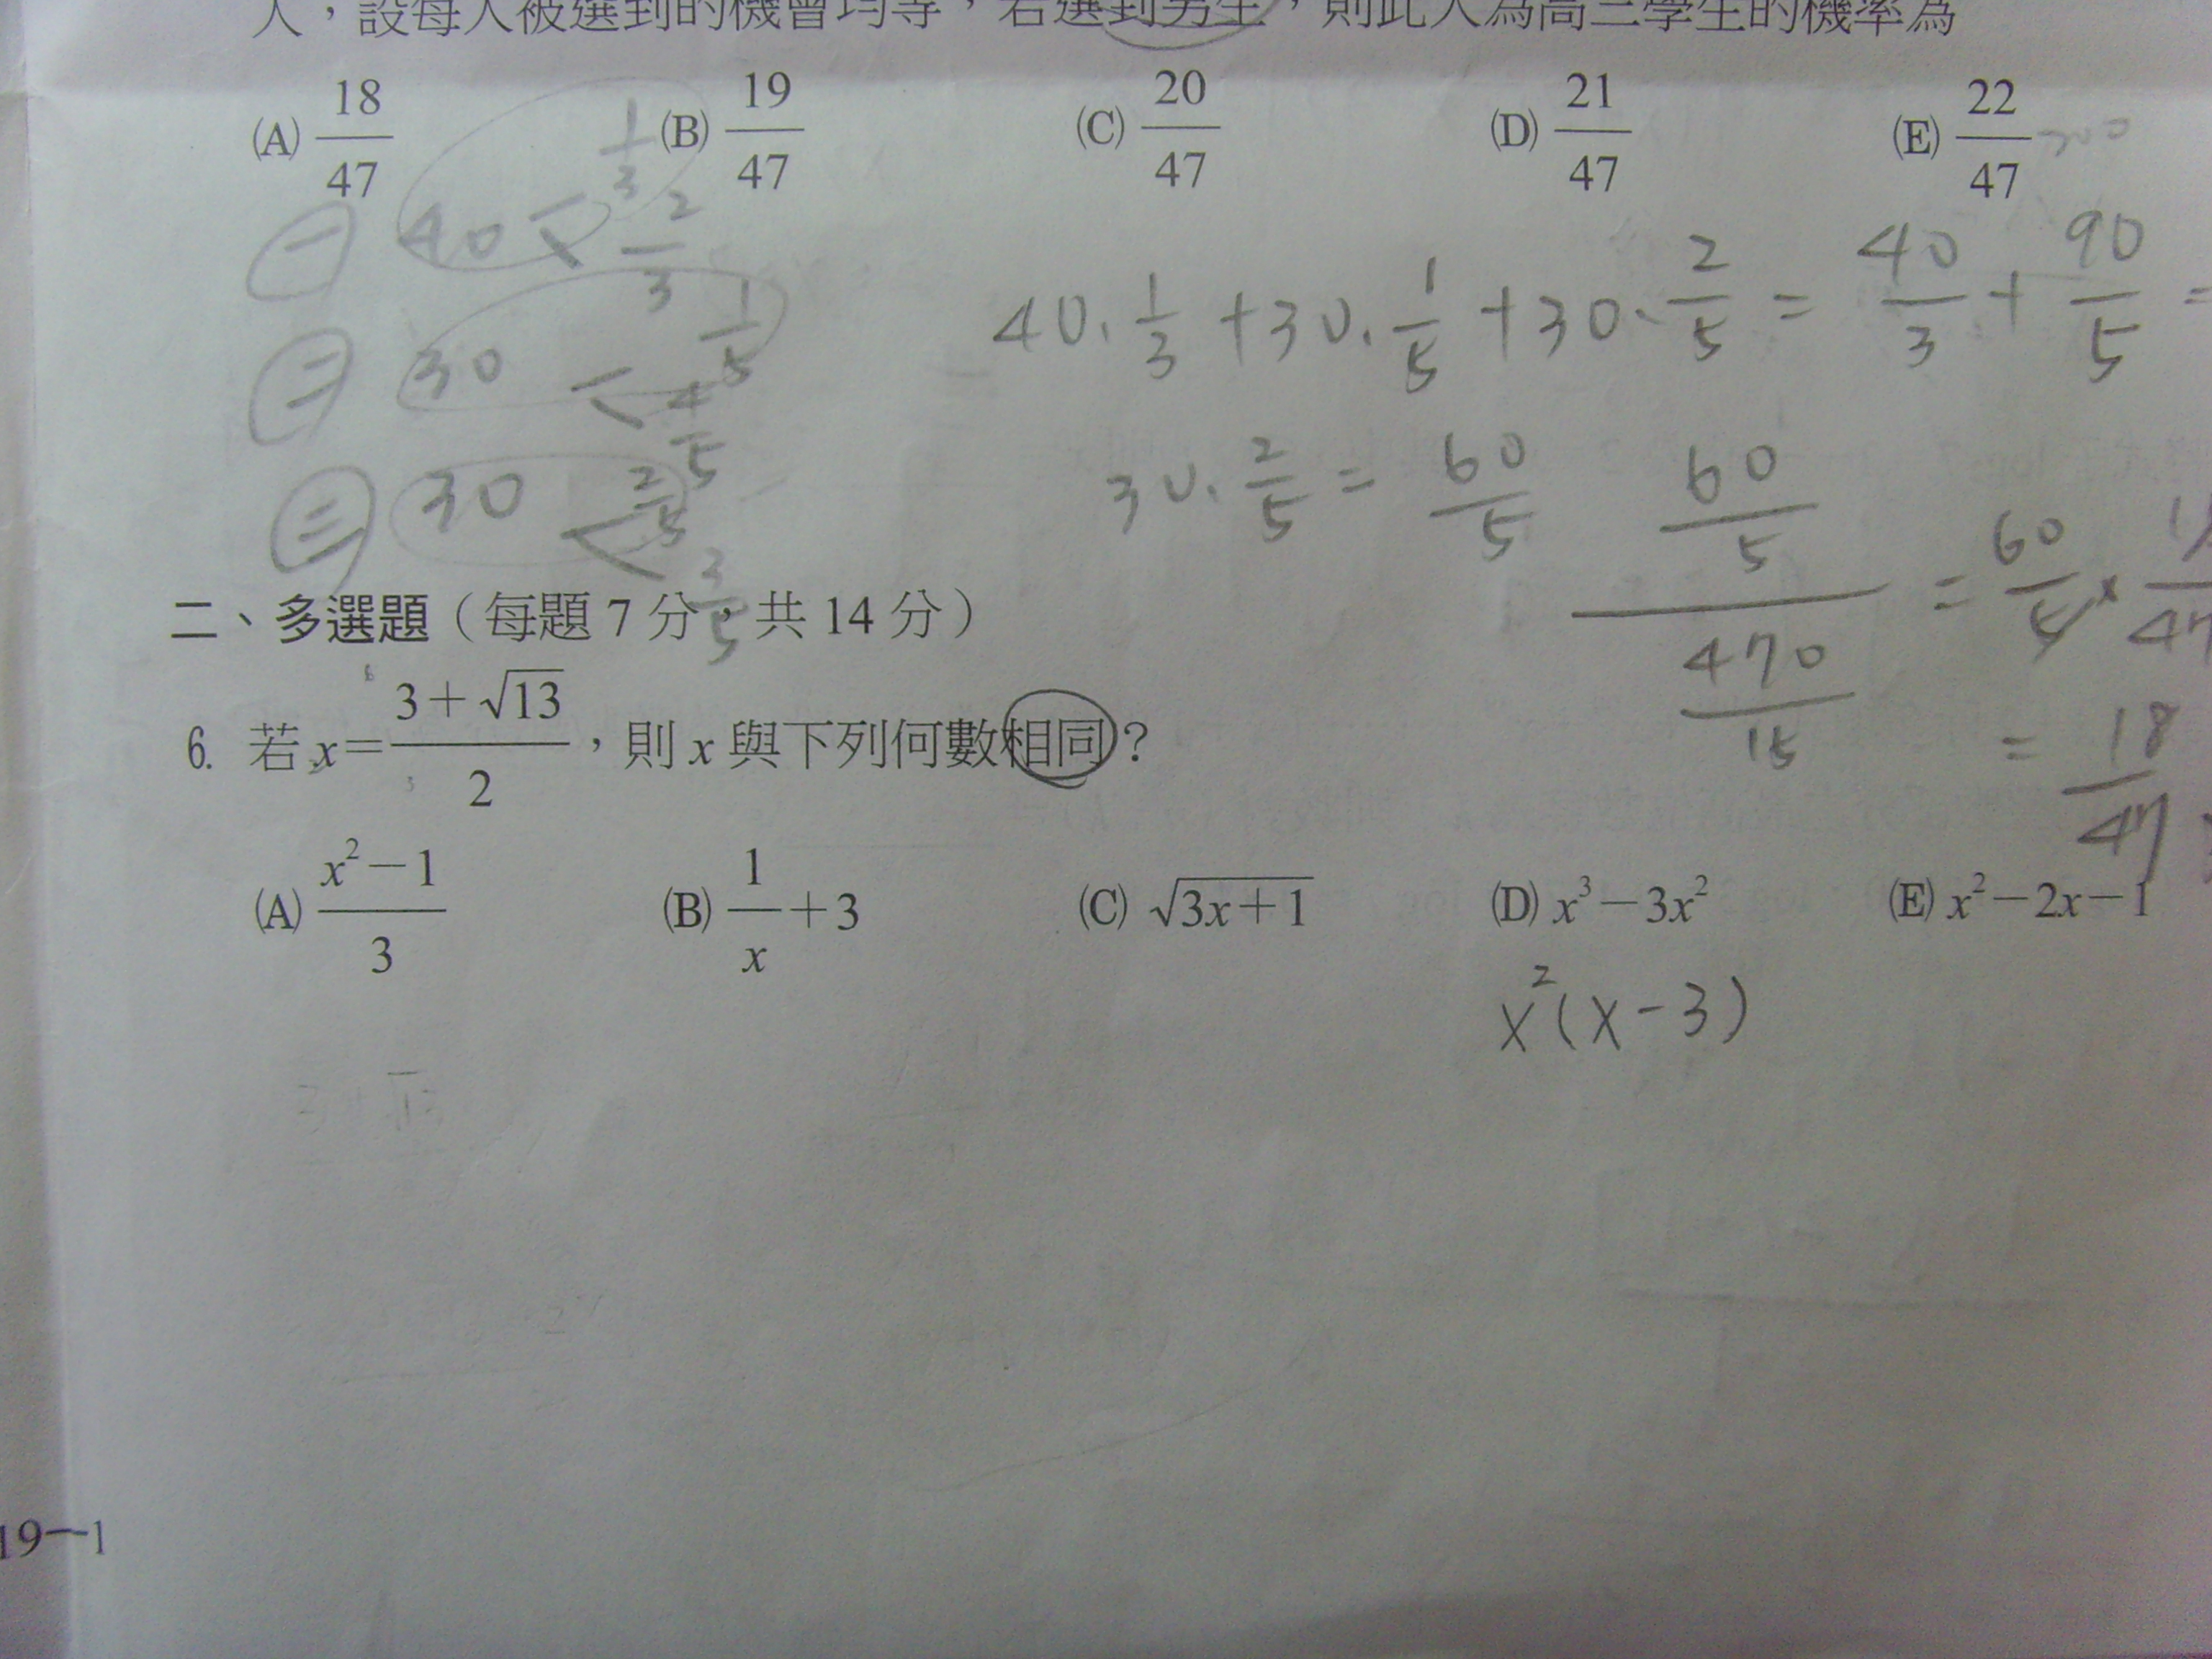 人，設每人被選到的機會均等，若選到男生，則此人為高三學生的機率為
(A) 18/47 (B) 19/47 (C) 20/47 (D) 21/47 (E) 22/47
一 40 1/3 2/3
二 30 1/5 4/5
三 30 2/5 3/5
40·1/3+30·1/5+30·2/5=40/3+90/5=
30·2/5=60/5
60/5 / 470/15 = 60/5 ×
= 18/47
二、多選題（每題7分，共14分）
6. 若x=(3+√13)/2，則x與下列何數相同？
(A) (x²－1)/3 (B) 1/x+3 (C) √(3x+1) (D) x³－3x² (E) x²－2x－1
x²(x-3)
19－1